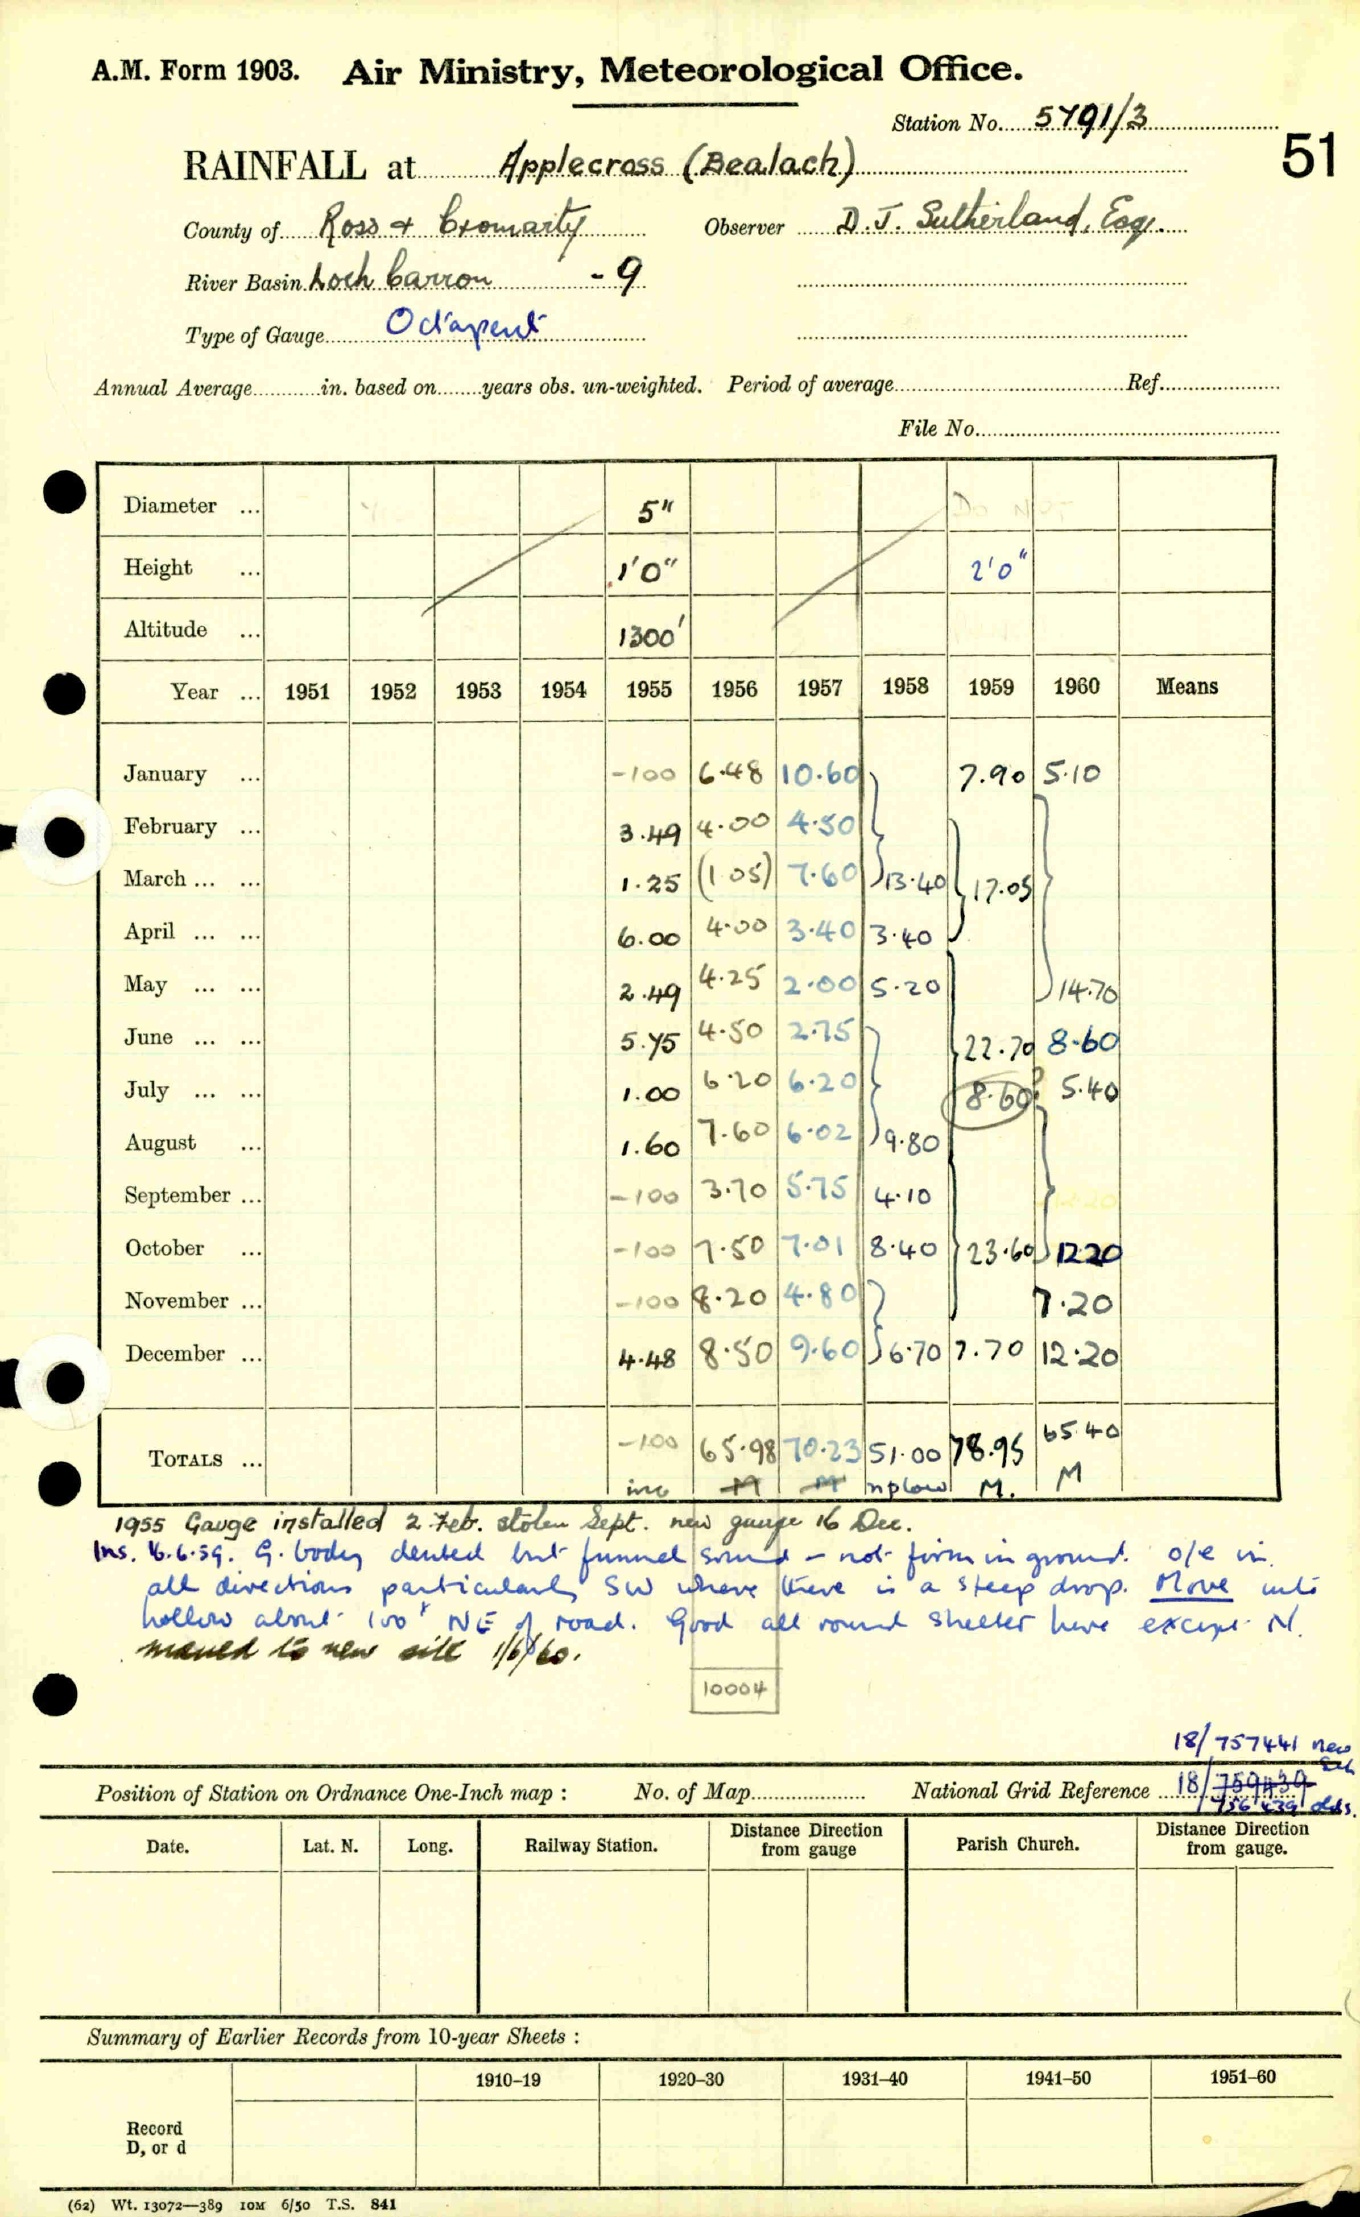 A.M. Form 1903. Air Ministry, Meteorological Office.
Station No. 5791/3
51
RAINFALL at Applecross (Bealach)
County of Ross & Cromarty Observer D. J. Sutherland, Esq.
River Basin Loch Carron - 9
Type of Gauge Octapent
Annual Average in. based on years obs. un-weighted. Period of average Ref.
File No.
Diameter ... 5"
Height ... 1'0" 2'0"
Altitude ... 1300'
Year ... 1951 1952 1953 1954 1955 1956 1957 1958 1959 1960 Means
January ... -100 6.48 10.60 7.90 5.10
February ... 3.49 4.00 4.50
March ... ... 1.25 (1.05) 7.60 13.40 17.05
April ... ... 6.00 4.00 3.40 3.40
May ... ... 2.49 4.25 2.00 5.20 14.70
June ... ... 5.75 4.50 2.75 22.70 8.60
July ... ... 1.00 6.20 6.20 8.60? 5.40
August ... 1.60 7.60 6.02 9.80
September ... -100 3.70 5.75 4.10
October ... -100 7.50 7.01 8.40 23.60 12.20
November ... -100 8.20 4.80 7.20
December ... 4.48 8.50 9.60 6.70 7.70 12.20
TOTALS ... -100 65.98 70.23 51.00 78.95 65.40
inc M M M. M
1955 Gauge installed 2 Feb. stolen Sept. new gauge 16 Dec.
Ins. 16.6.59. G. body dented but funnel sound - not firm in ground. o/e in
all directions particularly SW where there is a steep drop. Move into
hollow about 100x NE of road. Good all round shelter here except N.
moved to new site 1/6/60.
10004
18/757441 new
Position of Station on Ordnance One-Inch map : No. of Map National Grid Reference 18/759439
756439 olds.
Date. Lat. N. Long. Railway Station. Distance from gauge Direction Parish Church. Distance from gauge. Direction
Summary of Earlier Records from 10-year Sheets :
1910–19 1920–30 1931–40 1941–50 1951–60
Record
D, or d
(62) Wt. 13072—389 10M 6/50 T.S. 841